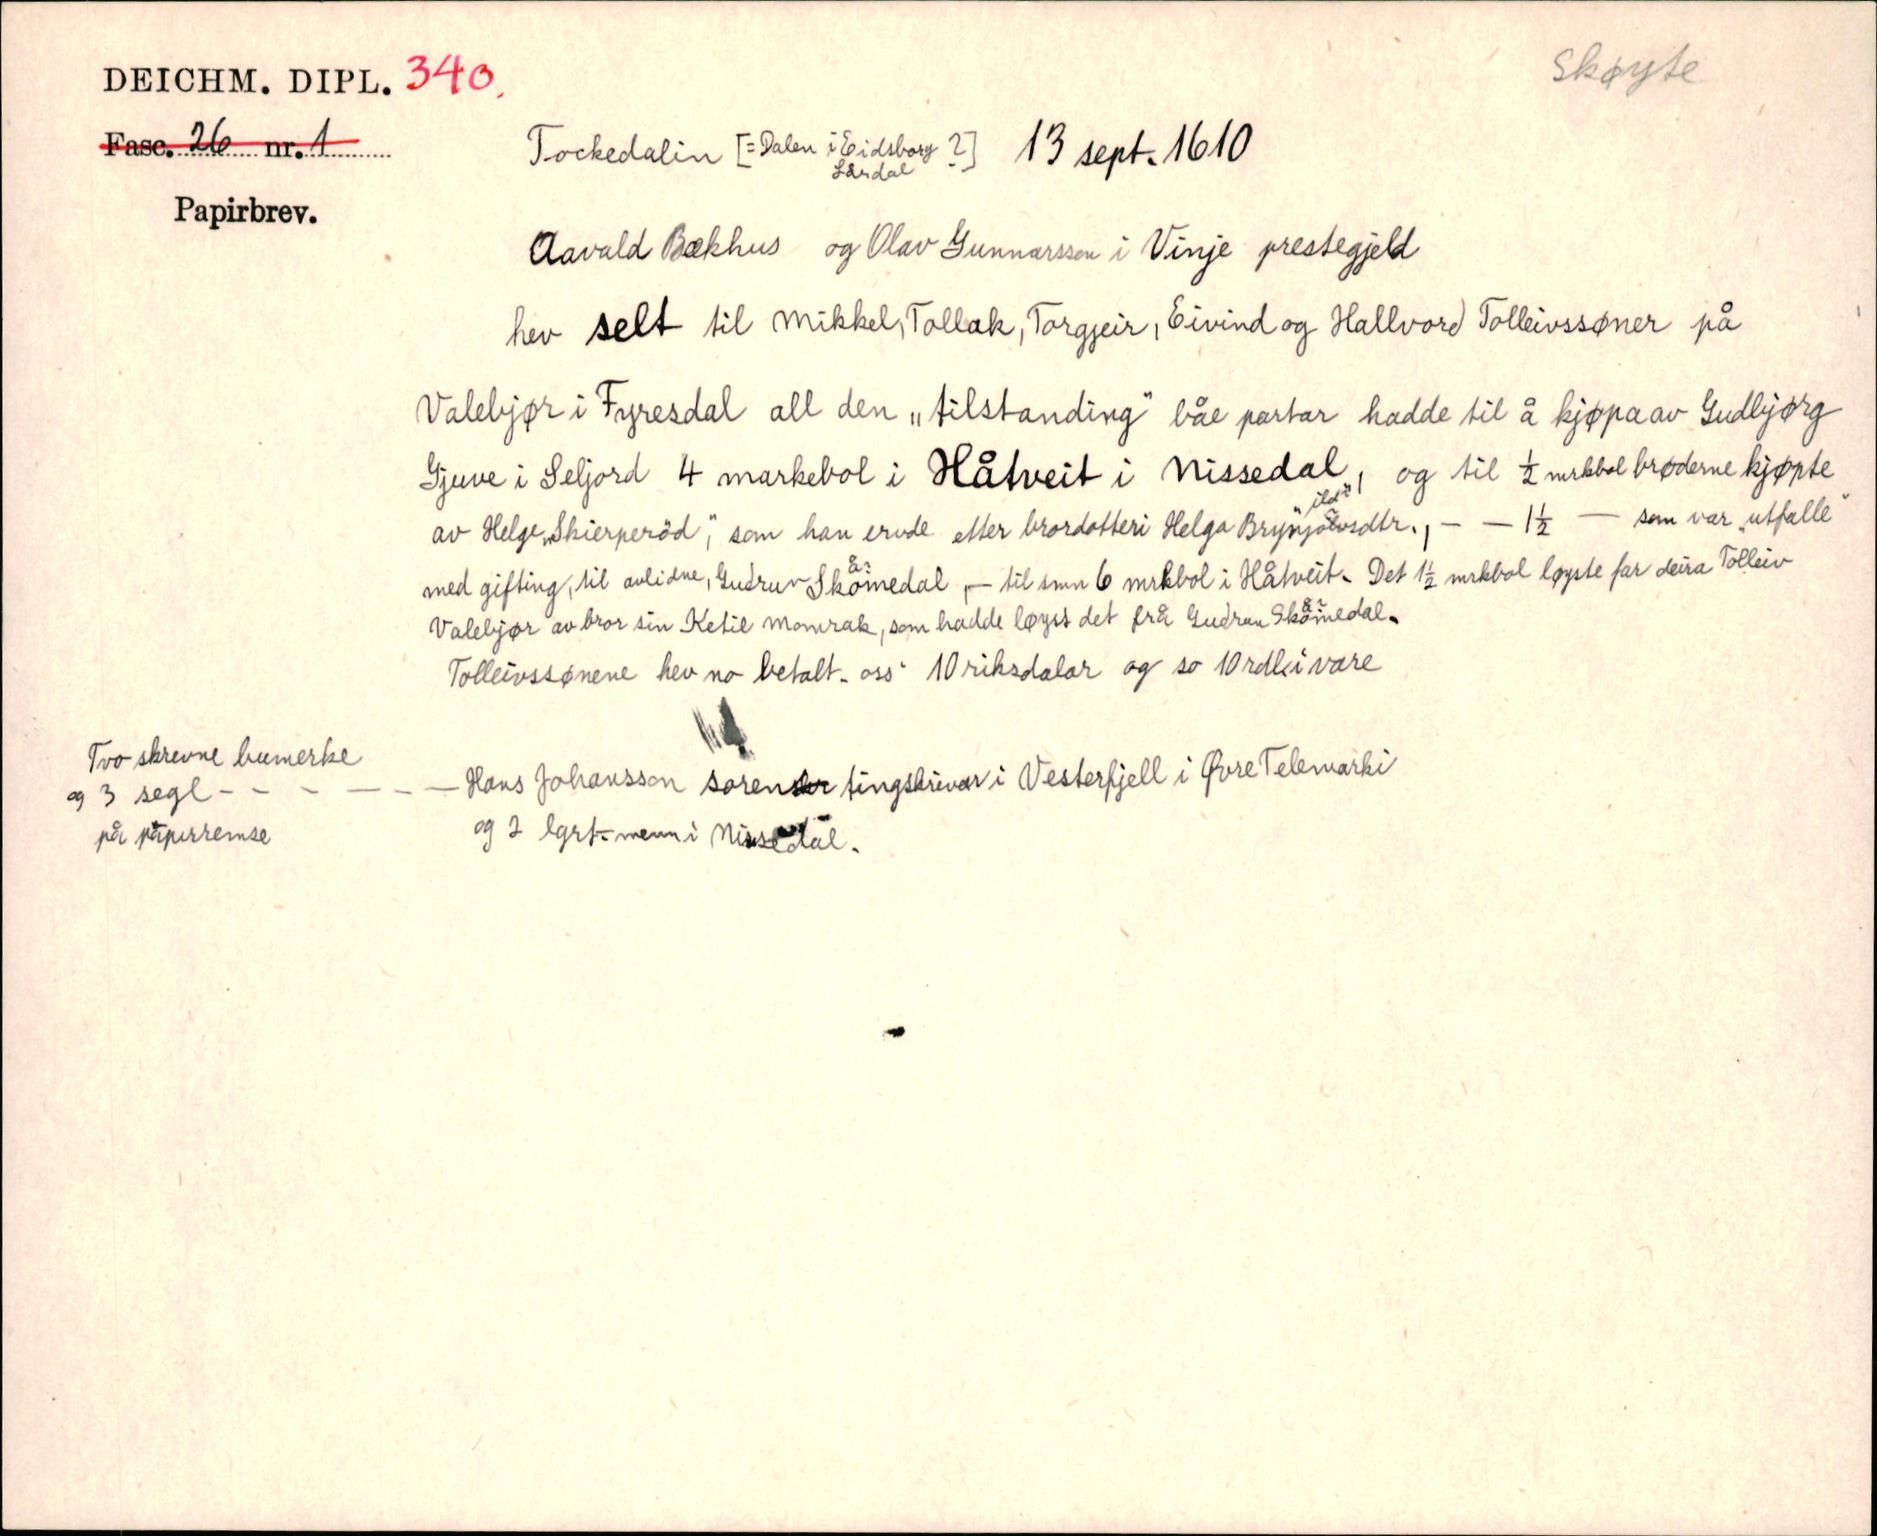 DEICHM. DIPL. 340.
Skøyte
Fasc. 26 nr. 1
Tockedalin [= Dalen i Eidsborg ?] 13 sept. 1610
Lårdal
Papirbrev.
Aavald Bækhus og Olav Gunnarsson i Vinje prestegjeld
hev selt til Mikkel, Tollak, Torgjeir, Eivind og Hallvord Tolleivssøner på
Valebjør i Fyresdal all den „tilstanding" båe partar hadde til å kjøpa av Gudbjørg
Gjuve i Seljord 4 markebol i Håtveit i Nissedal, og til ½ mrkbol brøderne kjøpte
av Helge „Skierperöd", som han ervde etter brordotteri Helga Brynjolvsdtr., — — 1½ — som var „utfalle"
med gifting, til avlidne, Gudrun Skömedal, — til smn 6 mrkbol i Håtveit. Det 1½ mrkbol løyste far deira Tolleiv
Valebjør av bror sin Ketil Momrak, som hadde løyst det frå Gudrun Skömedal.
Tolleivssønene hev no betalt oss 10 riksdalar og so 10 rdl. i vare
Two skrevne bumerke
og 3 segl - - - - - - Hans Johansson soren tingskrivar i Vesterfjell i Øvre Telemarki
på papirremse
og 2 lgrt-menn i Nissedal.